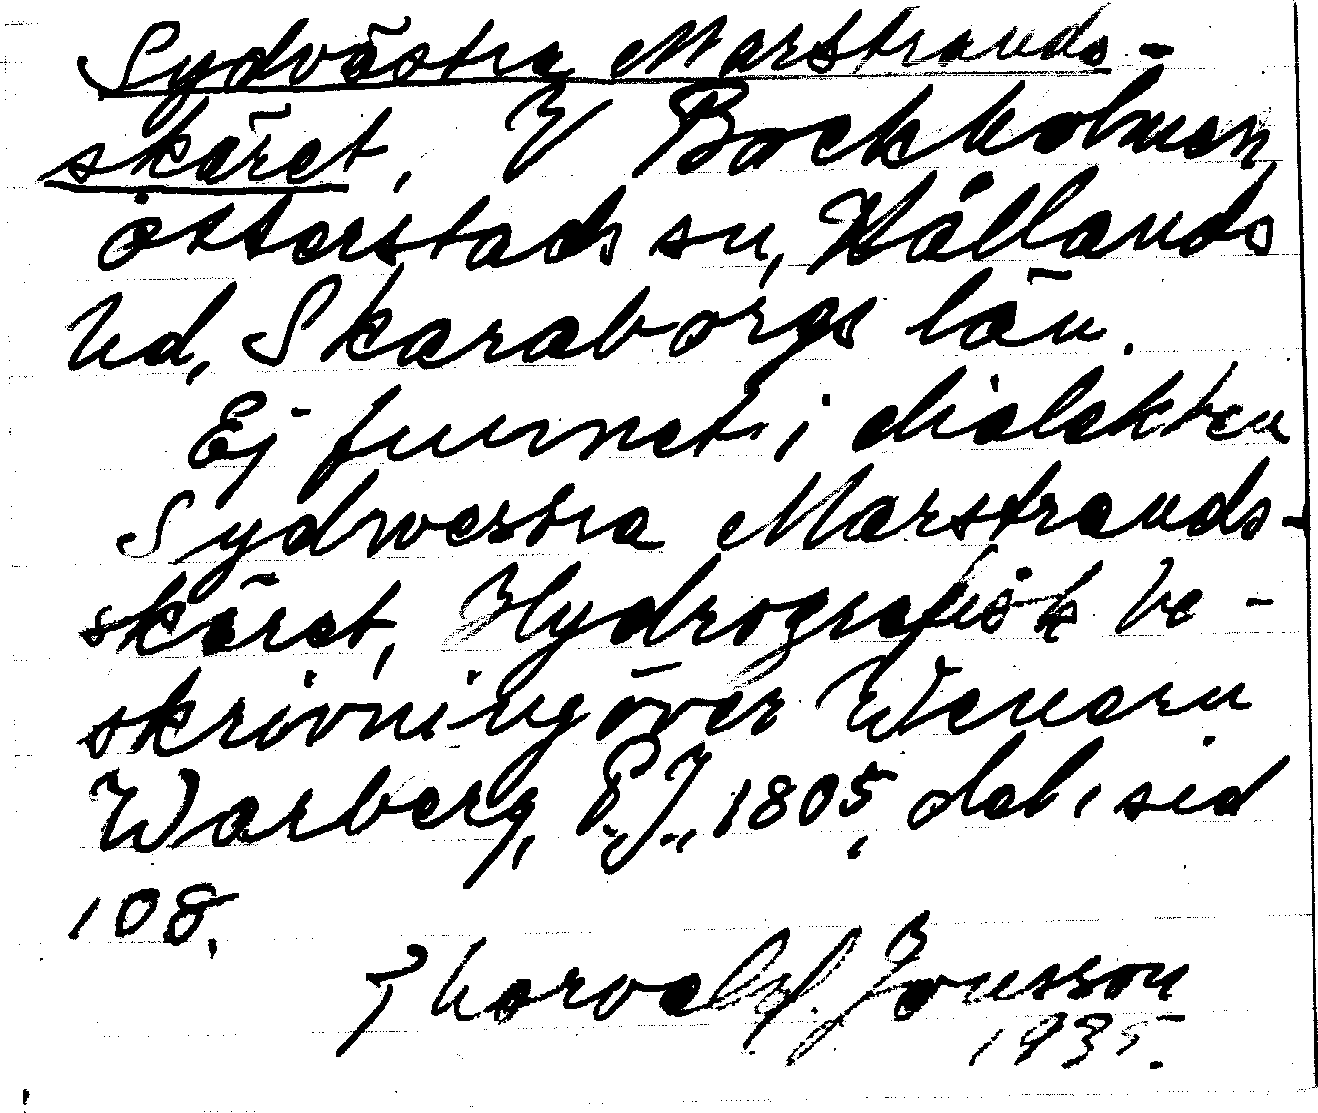 Sydvästra Marstrands-
skäret, V Bockholmen
Otterstads sn, Kållands
hd, Skaraborgs län.
Ej funnet i dialekten
Sydwestra Marstrands-
skäret, Hydrografisk be-
skrivning över Wenern
Warberg, P.J., 1805, del 1 sid
108.
Thorvald J. Jonsson
1935.